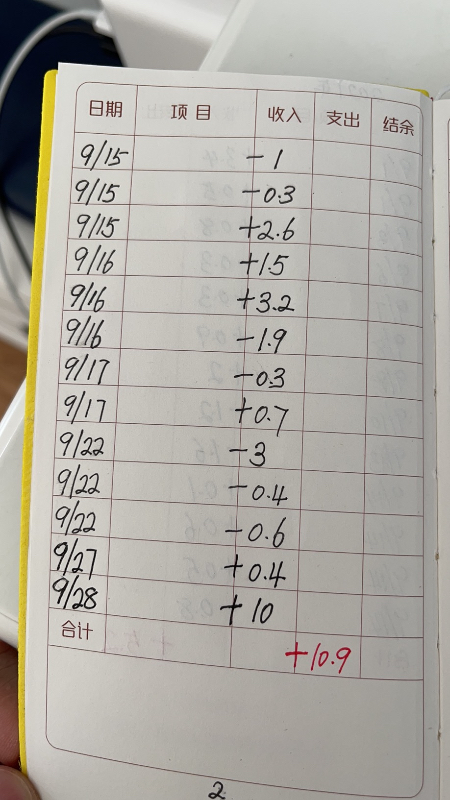 日期 项目 收入 支出 结余
9/15 -1
9/15 -0.3
9/15 +2.6
9/16 +1.5
9/16 +3.2
9/16 -1.9
9/17 -0.3
9/17 +0.7
9/22 -3
9/22 -0.4
9/22 -0.6
9/27 +0.4
9/28 +10
合计 +10.9
2